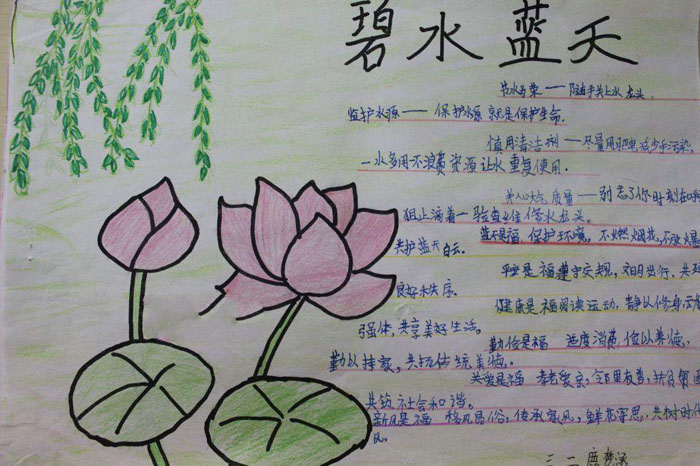 碧水蓝天
节水为荣——随手关上水龙头.
监护水源——保护水源就是保护生命.
慎用清洁剂——尽量用肥皂减少污染.
一水多用不浪费资源让水重复使用.
关心大气质量——别忘了你时刻在呼
阻止滴着—检查维修水龙头.
蓝天是福,保护环境,不燃烟花,不放爆
共护蓝天白云.
平安是福遵守交规,文明出行.共建
良好水秩序.
健康是福阅读运动,静以修身动
强体,共享美好生活.
勤俭是福 适度消费,俭以养德,
勤以持家,共扬传统美德.
共筑社会和谐.
新风是福 移风易俗,传承家风,鲜花寄思,共树时代
风.